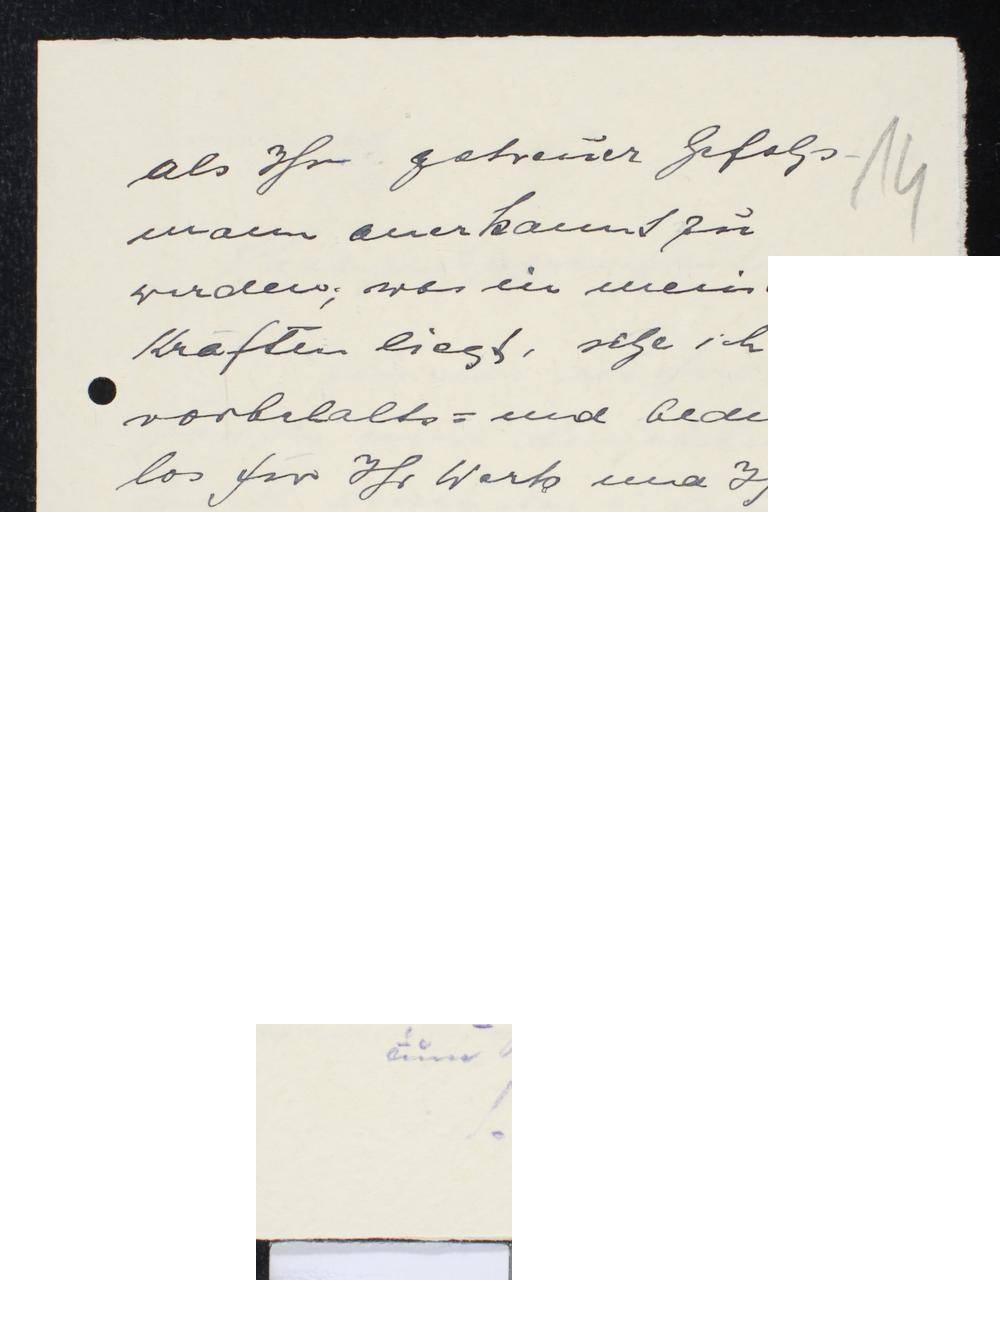 als Ihr getreuer Gefolgs- 14
mann anerkannt zu
werden; was in mein
Kräften liegt, setze ich
vorbehalts= und bedi
los für Ihr Werk und